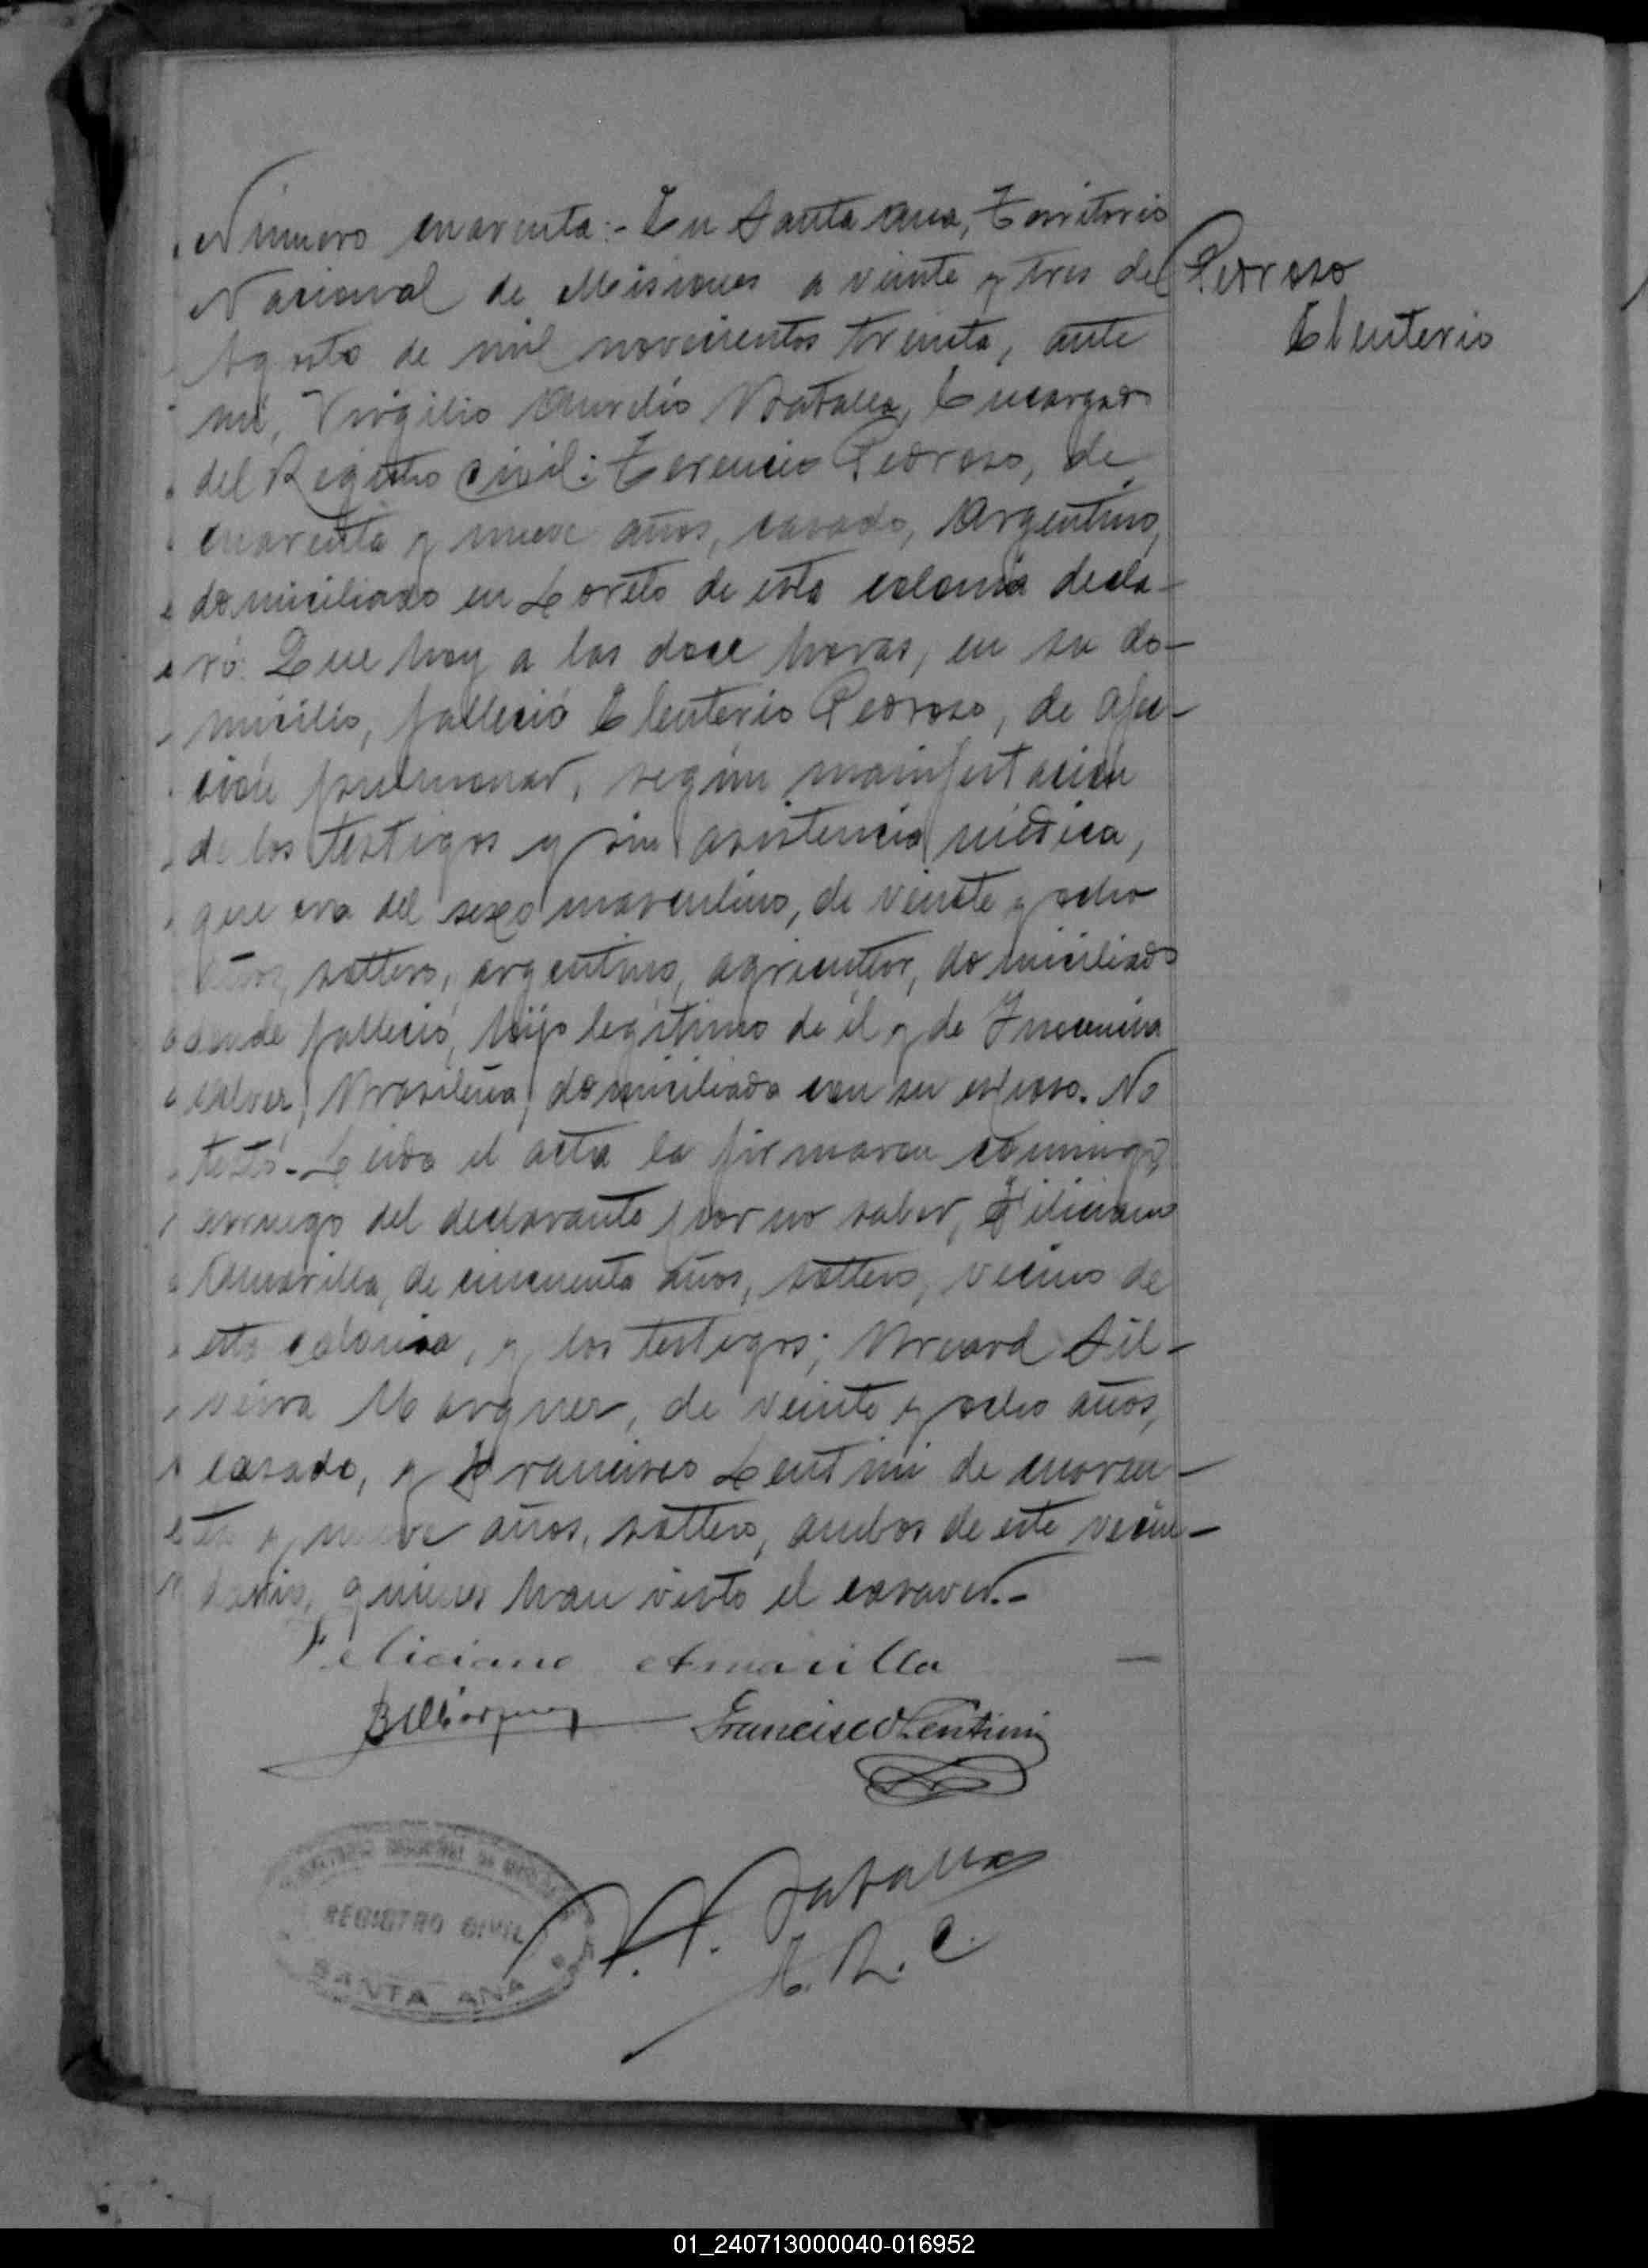 Número cuarenta:- En Santa Ana, Territorio
Nacional de Misiones a veinte y tres de
Agosto de mil novecientos treinta, ante
mí, Virgilio Aurelio Batalla, Encargado
del Registro Civil: Terencio Pedroso, de
cuarenta y nueve años, casado, Argentino,
domiciliado en Loreto de esta colonia decla-
ró: Que hoy a las doce horas, en su do-
micilio, falleció Eleuterio Pedroso, de afec-
ción pulmonar, según mainfestación
de los testigos y sin asistencia médica,
que era del sexo masculino, de veinte y ocho
años, soltero, argentino, agricultor, domiciliado
donde falleció, hijo legítimo de él y de Inocencia
Brasileña, domiciliada con su esposo. No
testó.- Leida el acta la firmaron conmigo,
arruego del declarante por no saber, Feliciano
Amarilla, de cincuenta años, soltero, vecino de
esta colonia, y los testigos; Sil-
veira Marquez, de veinte y ocho años,
casado, y Francisco Lentini de cuaren-
ta y nueve años, soltero, ambos de este vecin-
dario, quienes han visto el cadaver.-
Feliciano Amarilla
BMárquez Francisco Lentini
V. A. Batalla
E. R. C.
REGISTRO CIVIL
SANTA ANA
Pedroso
Eleuterio
01_240713000040-016952